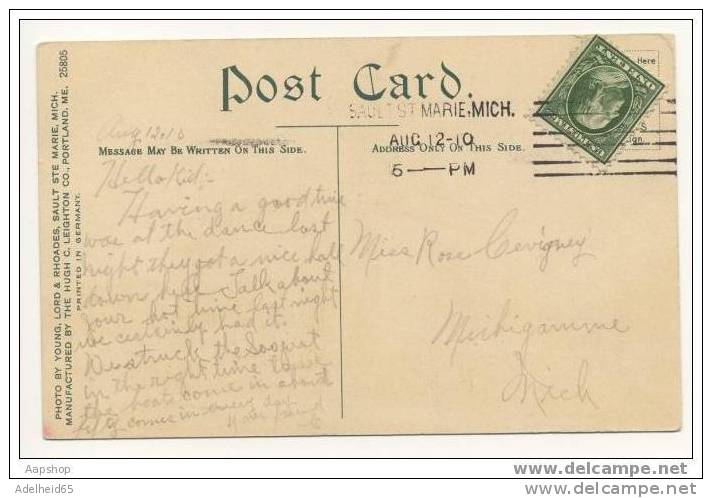 PHOTO BY YOUNG, LORD & RHOADES, SAULT STE MARIE, MICH.
MANUFACTURED BY THE HUGH C. LEIGHTON CO., PORTLAND, ME. 25805
PRINTED IN GERMANY.
Post Card.
Here
SAULT ST MARIE, MICH.
AUG 12-10
5 — PM
Aug 12.10
MESSAGE MAY BE WRITTEN ON THIS SIDE.
ADDRESS ONLY ON THIS SIDE.
Hello Kid;-
Having a good time
was at the dance last
night they got a nice hall
down here Talk about
your hot time last night
we certenly had it.
We struck the Soo just
in the right time to see
the boats come in about
comes in every day
Your friend
Miss Rose Cevigney
Michigamme
Mich
Aapshop
Adelheid65
www.delcampe.net
www.delcampe.net